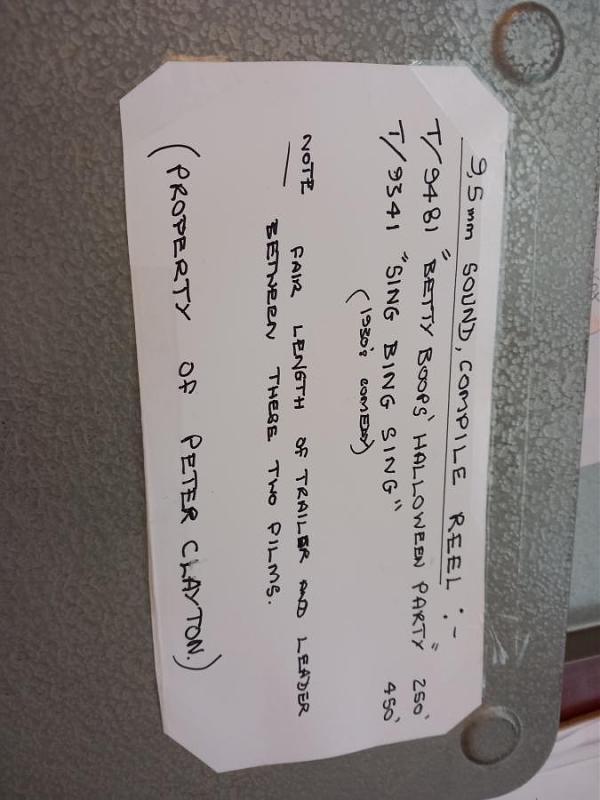 9,5mm SOUND, COMPILE REEL :-
T/9481 "BETTY BOOPS' HALLOWEEN PARTY" 250'
T/9341 "SING BING SING" 450'
(1930's COMEDY)
NOTE FAIR LENGTH OF TRAILER AND LEADER
BETWEEN THESE TWO FILMS.
(PROPERTY OF PETER CLAYTON.)